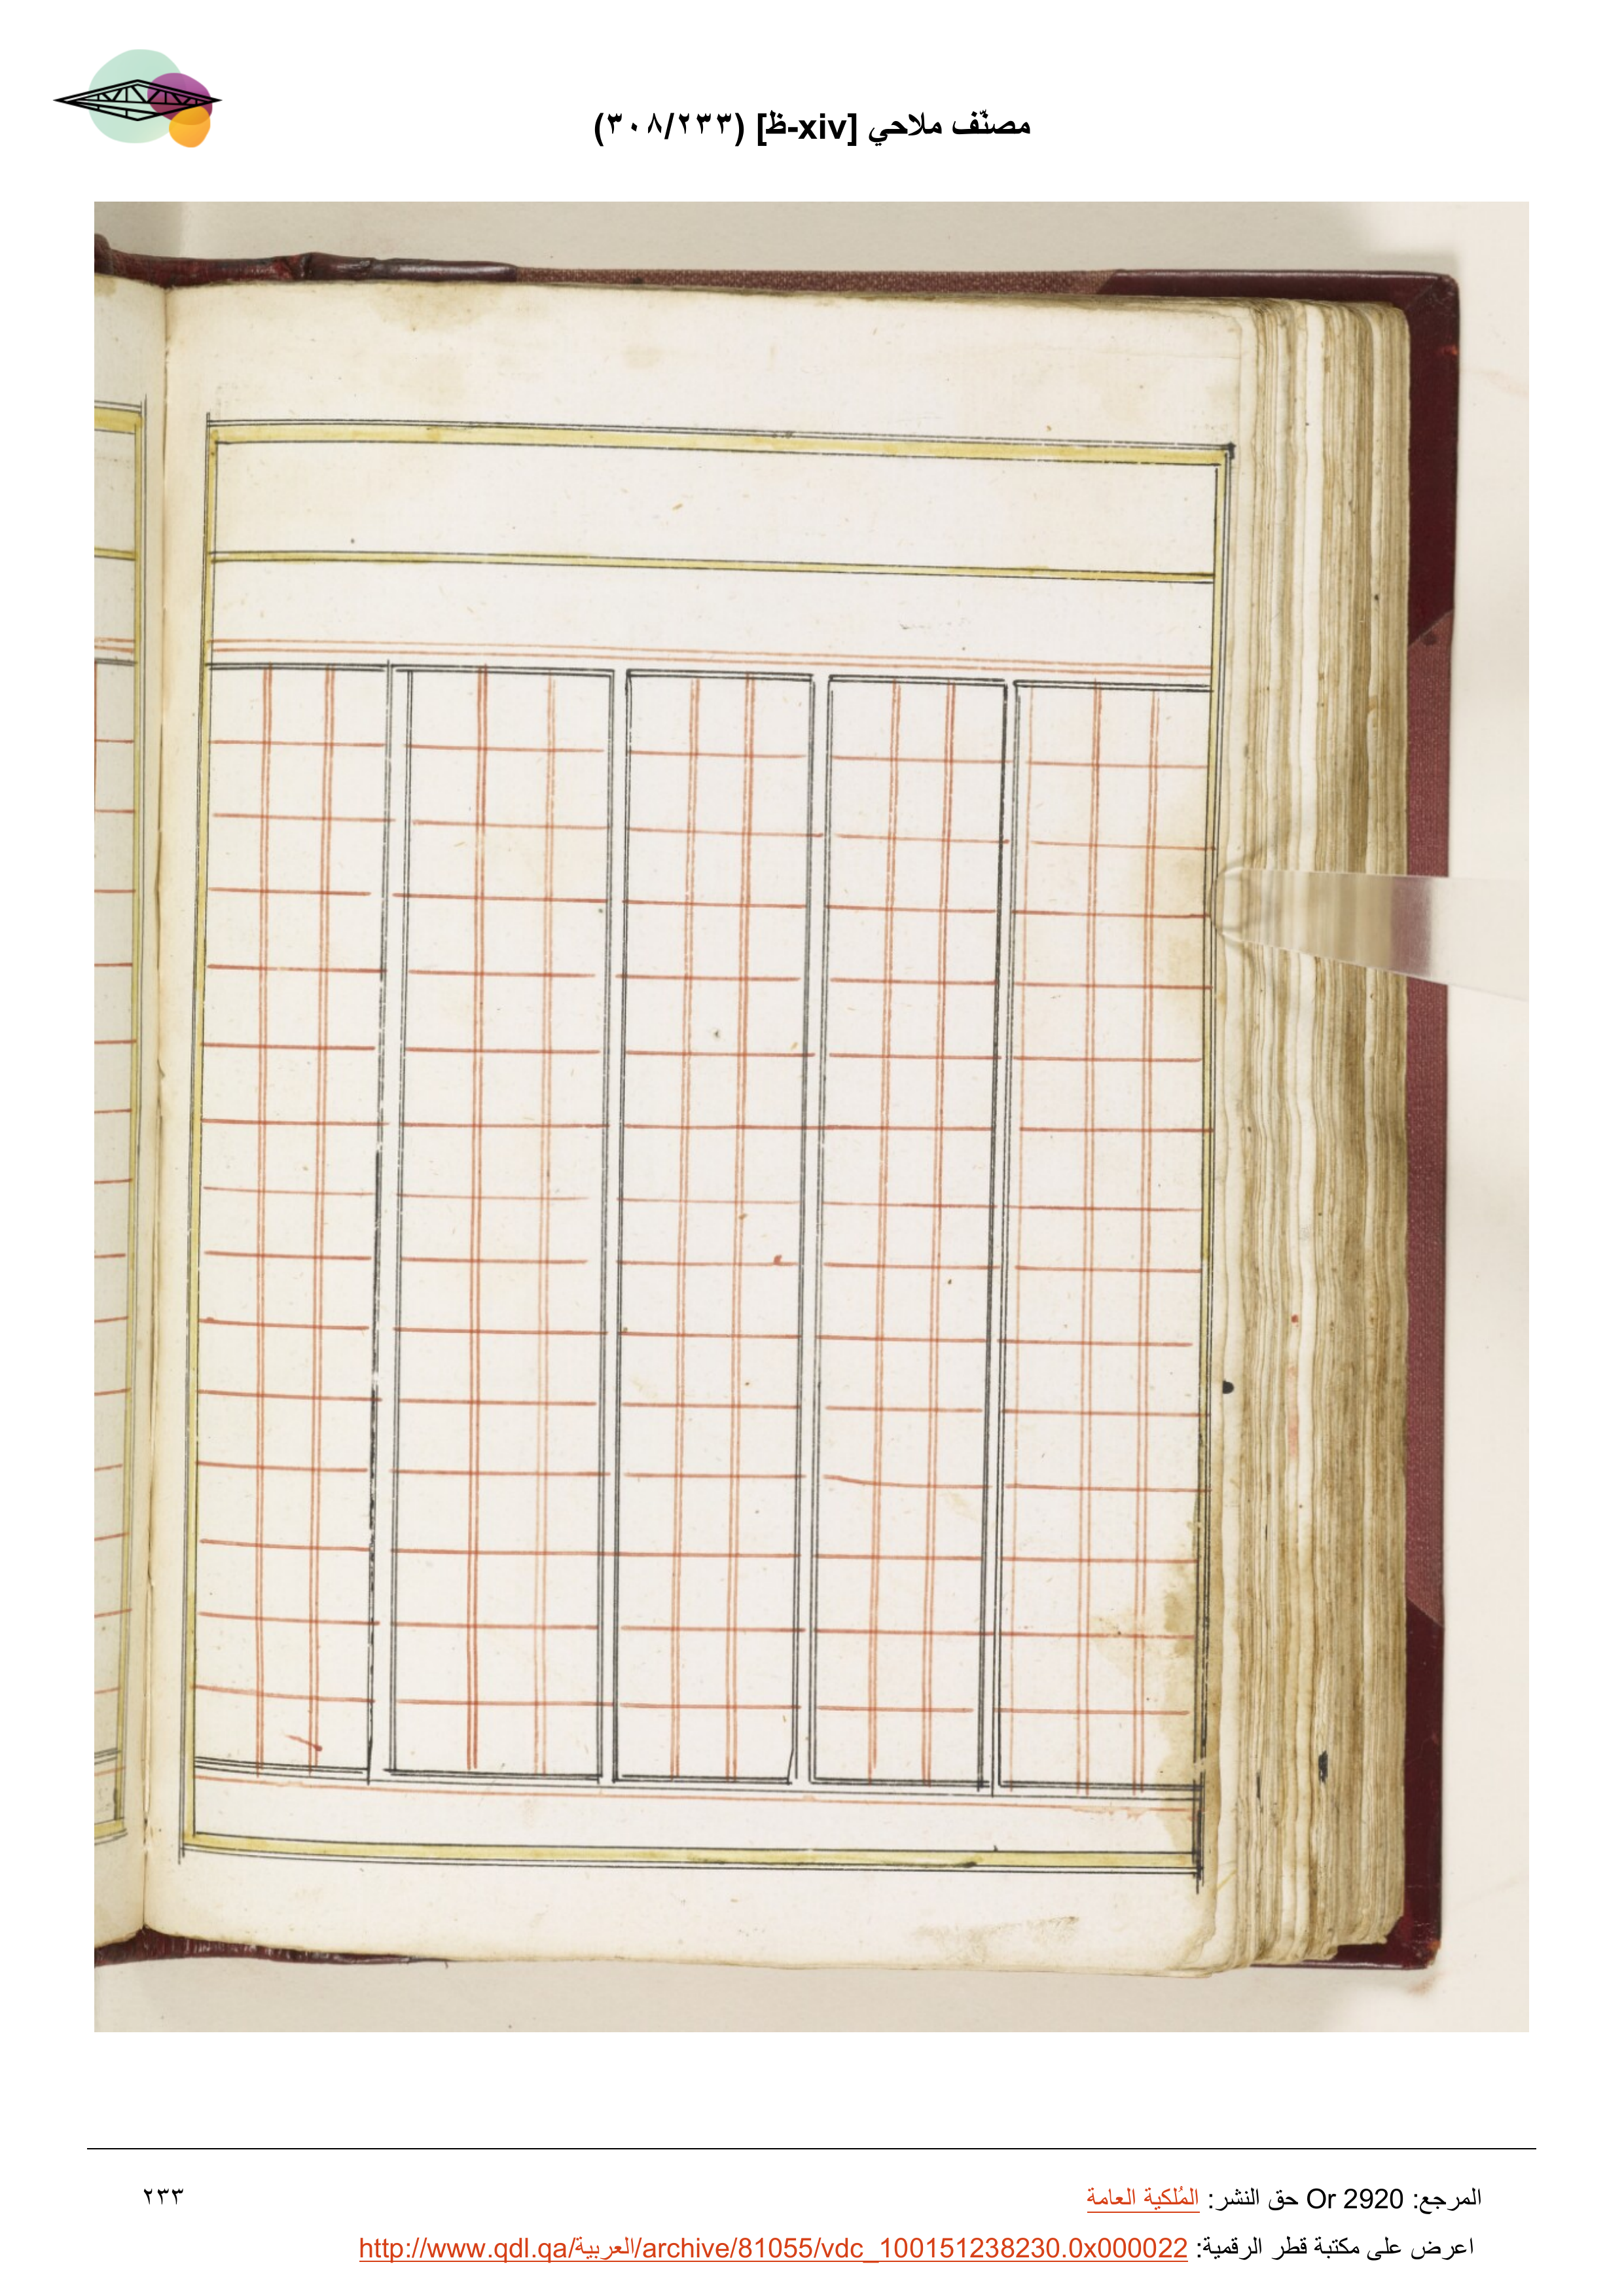 مصنّف ملاحي [xiv-ظ] (٣٠٨/٢٣٣)
المرجع: Or 2920 حق النشر: المُلكية العامة
٢٣٣
اعرض على مكتبة قطر الرقمية: http://www.qdl.qa/العربية/archive/81055/vdc_100151238230.0x000022